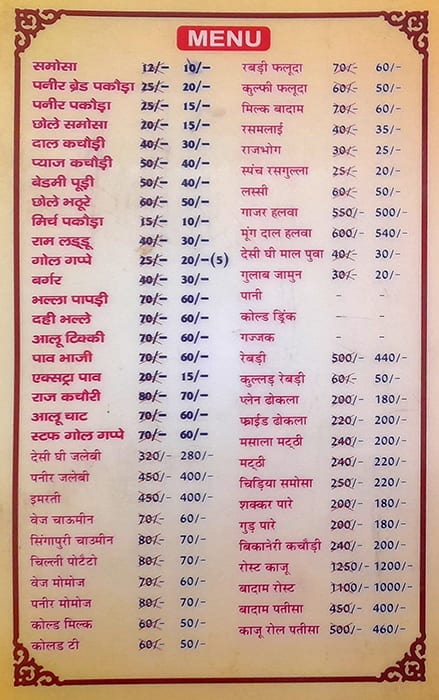 MENU
समोसा 12/- 10/-
पनीर ब्रेड पकौड़ा 25/- 20/-
पनीर पकौड़ा 25/- 15/-
छोले समोसा 20/- 15/-
दाल कचौड़ी 40/- 30/-
प्याज कचौड़ी 50/- 40/-
बेडमी पूड़ी 50/- 40/-
छोले भठूरे 60/- 50/-
मिर्च पकौड़ा 15/- 10/-
राम लड्डू 40/- 30/-
गोल गप्पे 25/- 20/-(5)
बर्गर 40/- 30/-
भल्ला पापड़ी 70/- 60/-
दही भल्ले 70/- 60/-
आलू टिक्की 70/- 60/-
पाव भाजी 70/- 60/-
एक्सट्रा पाव 20/- 15/-
राज कचौरी 80/- 70/-
आलू चाट 70/- 60/-
स्टफ गोल गप्पे 70/- 60/-
देसी घी जलेबी 320/- 280/-
पनीर जलेबी 450/- 400/-
इमरती 450/- 400/-
वेज चाऊमीन 70/- 60/-
सिंगापुरी चाउमीन 80/- 70/-
चिल्ली पोटैटो 80/- 70/-
वेज मोमोज 70/- 60/-
पनीर मोमोज 80/- 70/-
कोल्ड मिल्क 60/- 50/-
कोलड टी 60/- 50/-
रबड़ी फलूदा 70/- 60/-
कुल्फी फलूदा 60/- 50/-
मिल्क बादाम 70/- 60/-
रसमलाई 40/- 35/-
राजभोग 30/- 25/-
स्पंच रसगुल्ला 25/- 20/-
लस्सी 60/- 50/-
गाजर हलवा 550/- 500/-
मूंग दाल हलवा 600/- 540/-
देसी घी माल पुवा 40/- 30/-
गुलाब जामुन 30/- 20/-
पानी - -
कोल्ड ड्रिंक - -
गज्जक - -
रेबड़ी 500/- 440/-
कुल्लड़ रेबड़ी 60/- 50/-
प्लेन ढोकला 200/- 180/-
फ्राईड ढोकला 220/- 200/-
मसाला मट्ठी 240/- 200/-
मट्ठी 240/- 220/-
चिड़िया समोसा 250/- 220/-
शक्कर पारे 200/- 180/-
गुड़ पारे 200/- 180/-
बिकानेरी कचौड़ी 240/- 200/-
रोस्ट काजू 1250/- 1200/-
बादाम रोस्ट 1100/- 1000/-
बादाम पतीसा 450/- 400/-
काजू रोल पतीसा 500/- 460/-